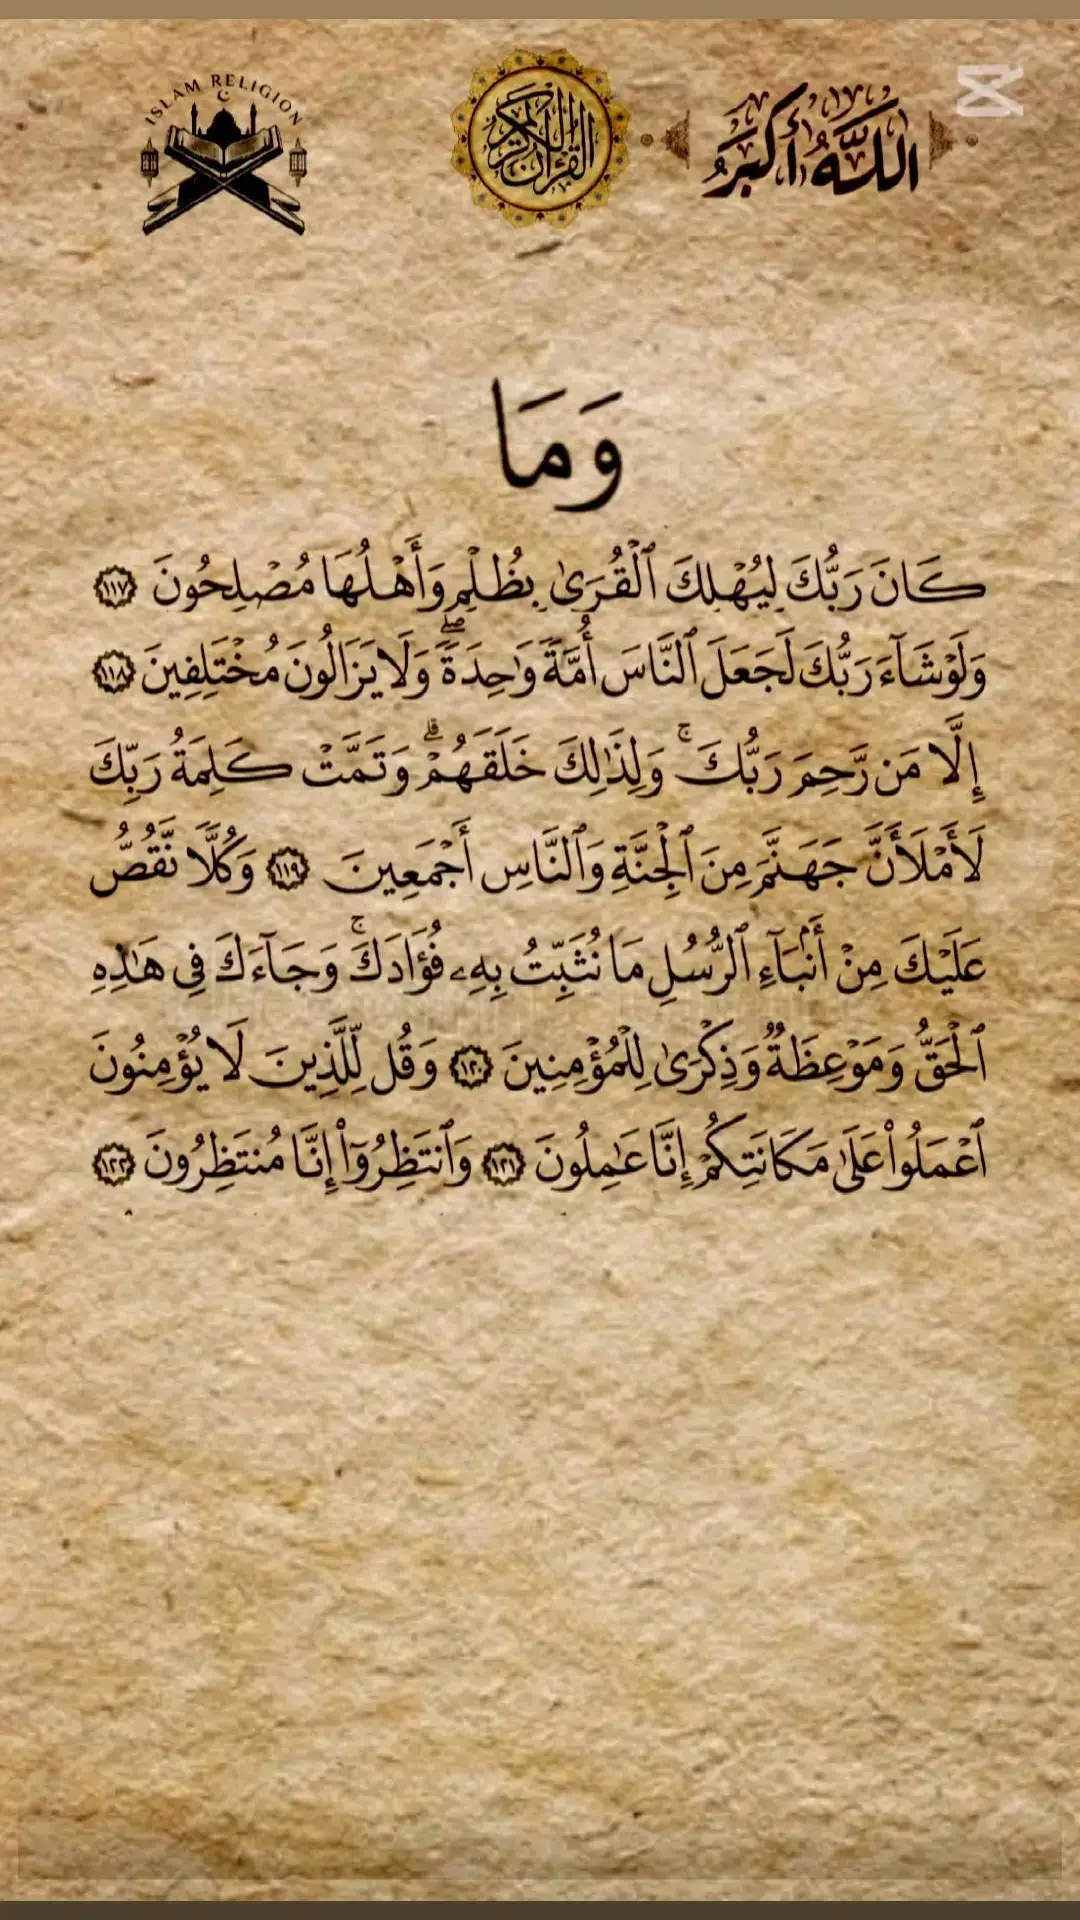 ISLAM RELIGION
القرآن الكريم
اللَّهُ أَكْبَرُ
وَمَا
كَانَ رَبُّكَ لِيُهْلِكَ ٱلْقُرَىٰ بِظُلْمٍ وَأَهْلُهَا مُصْلِحُونَ ١١٧
وَلَوْ شَآءَ رَبُّكَ لَجَعَلَ ٱلنَّاسَ أُمَّةً وَٰحِدَةً ۖ وَلَا يَزَالُونَ مُخْتَلِفِينَ ١١٨
إِلَّا مَن رَّحِمَ رَبُّكَ ۚ وَلِذَٰلِكَ خَلَقَهُمْ ۗ وَتَمَّتْ كَلِمَةُ رَبِّكَ
لَأَمْلَأَنَّ جَهَنَّمَ مِنَ ٱلْجِنَّةِ وَٱلنَّاسِ أَجْمَعِينَ ١١٩ وَكُلًّا نَّقُصُّ
عَلَيْكَ مِنْ أَنۢبَآءِ ٱلرُّسُلِ مَا نُثَبِّتُ بِهِۦ فُؤَادَكَ ۚ وَجَآءَكَ فِى هَٰذِهِ
ٱلْحَقُّ وَمَوْعِظَةٌ وَذِكْرَىٰ لِلْمُؤْمِنِينَ ١٢٠ وَقُل لِّلَّذِينَ لَا يُؤْمِنُونَ
ٱعْمَلُوا۟ عَلَىٰ مَكَانَتِكُمْ إِنَّا عَٰمِلُونَ ١٢١ وَٱنتَظِرُوٓا۟ إِنَّا مُنتَظِرُونَ ١٢٢